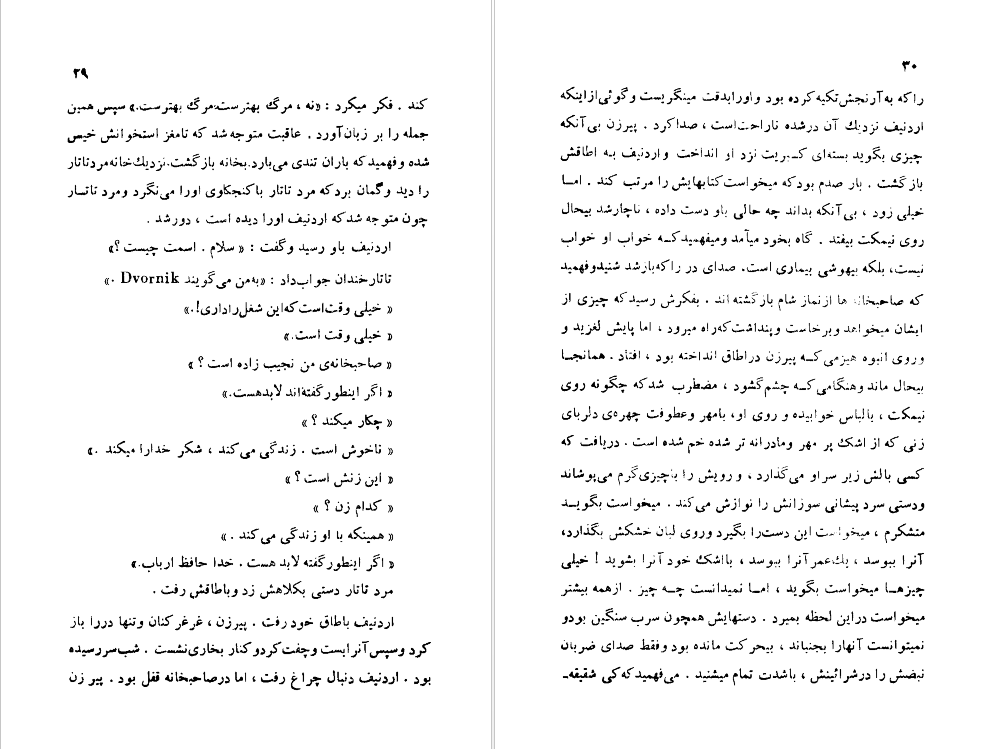 ۲۹
کند . فکر میکرد : «نه ، مرگ بهترست.مرگ بهترست.» سپس همین
جمله را بر زبان‌آورد . عاقبت متوجه شد که تامغز استخوانش خیس
شده وفهمیدکه باران تندی می‌بارد.بخانه بازگشت.نزدیك‌خانه‌مردتاتار
را دید وگمان بردکه مرد تاتار باکنجکاوی اورا می‌نگرد ومرد تاتـار
چون متوجه شدکه اردنیف اورا دیده است ، دورشد .
اردنیف باو رسید وگفت : « سلام . اسمت چیست ؟»
تاتارخندان جواب‌داد : «به‌من می‌گویند Dvornik .»
« خیلی وقت‌است‌که‌این شغل‌راداری!.»
« خیلی وقت است.»
« صاحبخانه‌ی من نجیب زاده است ؟ »
« اگر اینطورگفته‌اند لابدهست.»
« چکار میکند ؟ »
« ناخوش است . زندگی می‌کند ، شکر خدارا میکند .»
« این زنش است ؟ »
« کدام زن ؟ »
« همینکه با او زندگی می‌کند . »
« اگر اینطورگفته لابد هست . خدا حافظ ارباب.»
مرد تاتار دستی بکلاهش زد وباطاقش رفت .
اردنیف باطاق خود رفت . پیرزن ، غرغرکنان وتنها دررا باز
کرد وسپس‌آنرابست وچفت‌کردوکنار بخاری‌نشست . شب‌سررسیده
بود . اردنیف دنبال چراغ رفت ، اما درصاحبخانه قفل بود . پیر زن
۳۰
راکه به‌آرنجش‌تکیه‌کرده بود واورابدقت مینگریست وگوئی‌ازاینکه
اردنیف نزدیك آن درشده ناراحت‌است ، صداکرد . پیرزن بی‌آنکه
چیزی بگوید بسته‌ای کبریت نزد او انداخت واردنیف به اطاقش
بازگشت . بار صدم بودکه میخواست‌کتابهایش را مرتب کند . امـا
خیلی زود ، بی‌آنکه بداند چه حالی باو دست داده ، ناچارشد بیحال
روی نیمکت بیفتد . گاه بخود میآمد ومیفهمیدکـه خواب او خواب
نیست، بلکه بیهوشی بیماری است. صدای در راکه‌بازشد شنیدوفهمید
که صاحبخانه ها ازنماز شام بازگشته اند . بفکرش رسیدکه چیزی از
ایشان میخواهد وبرخاست وپنداشت‌که‌راه میرود ، اما پایش لغزید و
وروی انبوه هیزمی‌کـه پیرزن دراطاق انداخته بود ، افتاد . همانجـا
بیحال ماند وهنگامی‌کـه چشم‌گشود ، مضطرب شدکه چگونه روی
نیمکت ، بالباس خوابیده و روی او، بامهر وعطوفت چهره‌ی دلربای
زنی که از اشك پر مهر ومادرانه تر شده خم شده است . دریافت که
کسی بالش زیر سراو می‌گذارد ، و رویش را باچیزی‌گرم می‌پوشاند
ودستی سرد پیشانی سوزانش را نوازش می‌کند . میخواست بگویـد
متشکرم ، میخواست این دست‌را بگیرد وروی لبان خشکش بگذارد،
آنرا ببوسد ، یك‌عمرآنرا ببوسد ، بااشك خود آنرا بشوید ! خیلی
چیزهـا میخواست بگوید ، امـا نمیدانست چـه چیز . ازهمه بیشتر
میخواست دراین لحظه بمیرد . دستهایش همچون سرب سنگین بودو
نمیتوانست آنهارا بجنباند ، بیحرکت مانده بود وفقط صدای ضربان
نبضش را درشرائینش ، باشدت تمام میشنید . می‌فهمیدکه‌کی شقیقه‌ـ